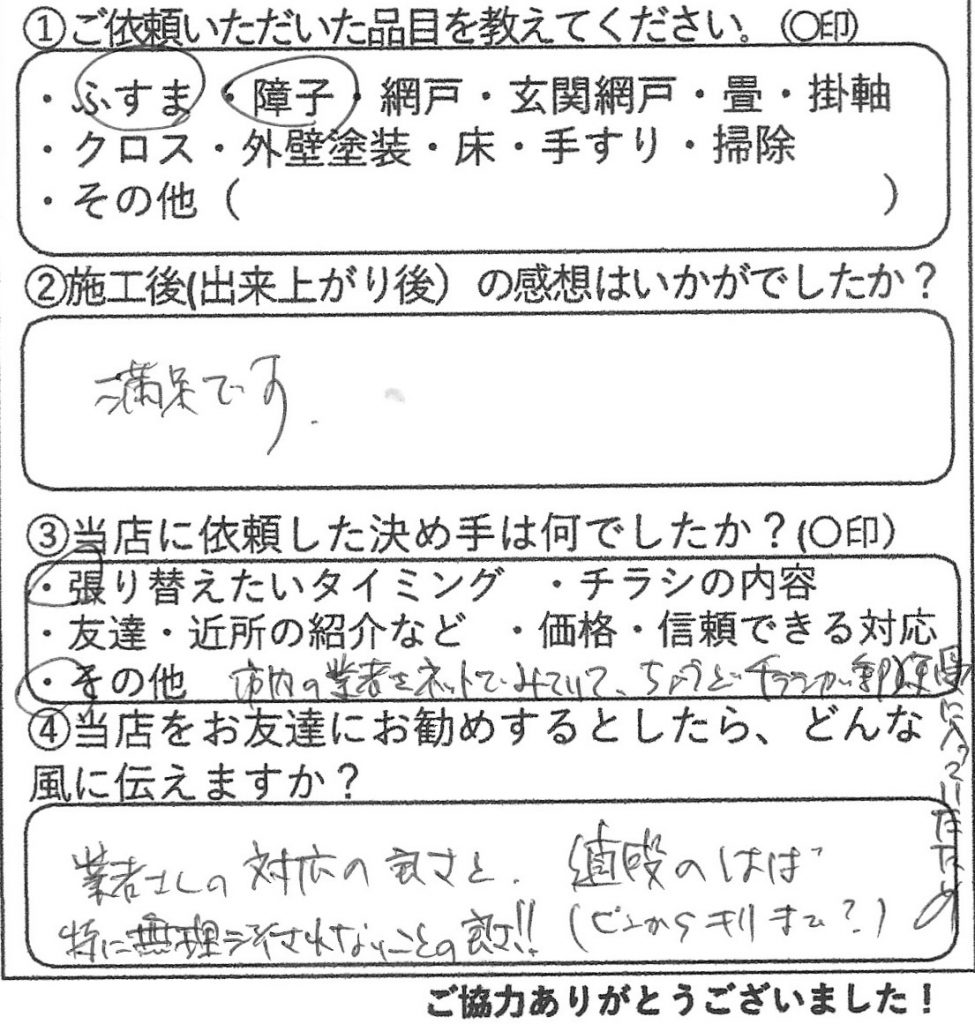 ①ご依頼いただいた品目を教えてください。(〇印)
・ふすま・障子・網戸・玄関網戸・畳・掛軸
・クロス・外壁塗装・床・手すり・掃除
・その他（　　　　　　　　　　　　　　　）
②施工後(出来上がり後）の感想はいかがでしたか？
満足です.
③当店に依頼した決め手は何でしたか？(〇印）
・張り替えたいタイミング　・チラシの内容
・友達・近所の紹介など　・価格・信頼できる対応
・その他 市内の業者をネットでみていて、ちょうどチラシが郵便受
に入っていたため
④当店をお友達にお勧めするとしたら、どんな
風に伝えますか？
業者さんの対応の良さと. 値段のはば
特に無理 されないことの良さ!! (ピンからキリまで？)
ご協力ありがとうございました！